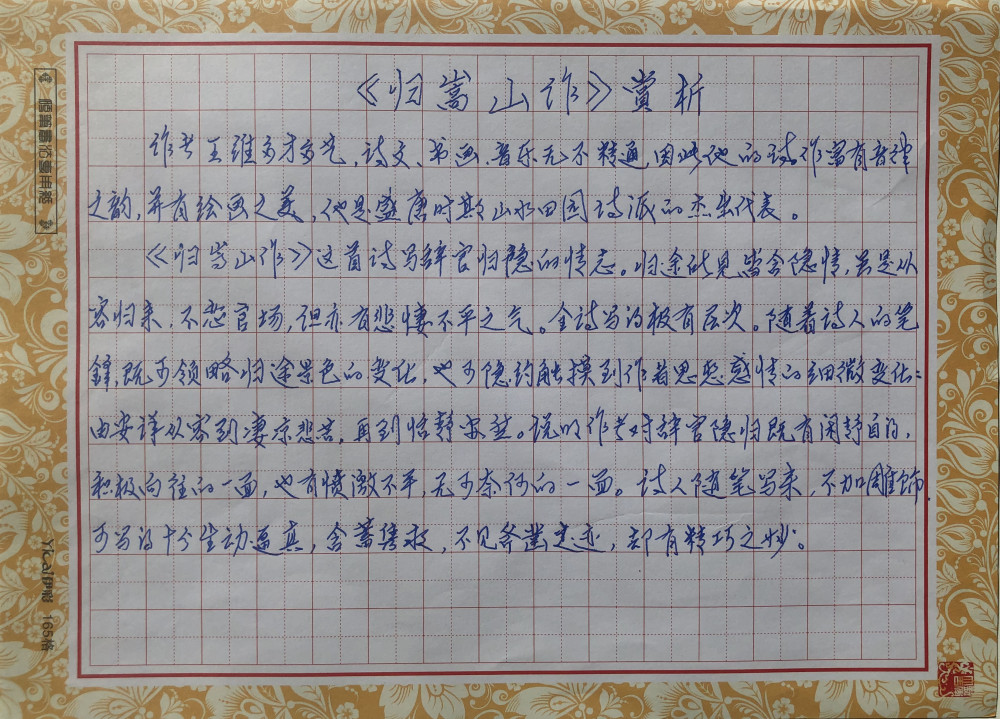 《归嵩山作》赏析
作者王维多才多艺,诗文、书画、音乐无不精通,因此他的诗作富有音律
之韵,并有绘画之美,他是盛唐时期山水田园诗派的杰出代表。
《归嵩山作》这首诗写辞官归隐的情志。归途所见皆含隐情,虽是从
容归来,不恋官场,但亦有悲悽不平之气。全诗写的极有层次。随着诗人的笔
锋,既可领略归途景色的变化,也可隐约触摸到作者思想感情的细微变化:
由安详从容到凄凉悲苦,再到恬静安然。说明作者对辞官隐归既有闲静自的,
积极向往的一面,也有愤激不平,无可奈何的一面。诗人随笔写来,不加雕饰
可写的十分生动逼真,含蓄隽永,不见斧凿之迹,却有精巧之妙。
Yical伊彩 165格